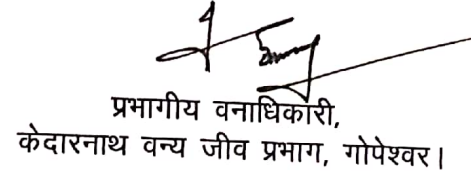 प्रभागीय वनाधिकारी,
केदारनाथ वन्य जीव प्रभाग, गोपेश्वर।